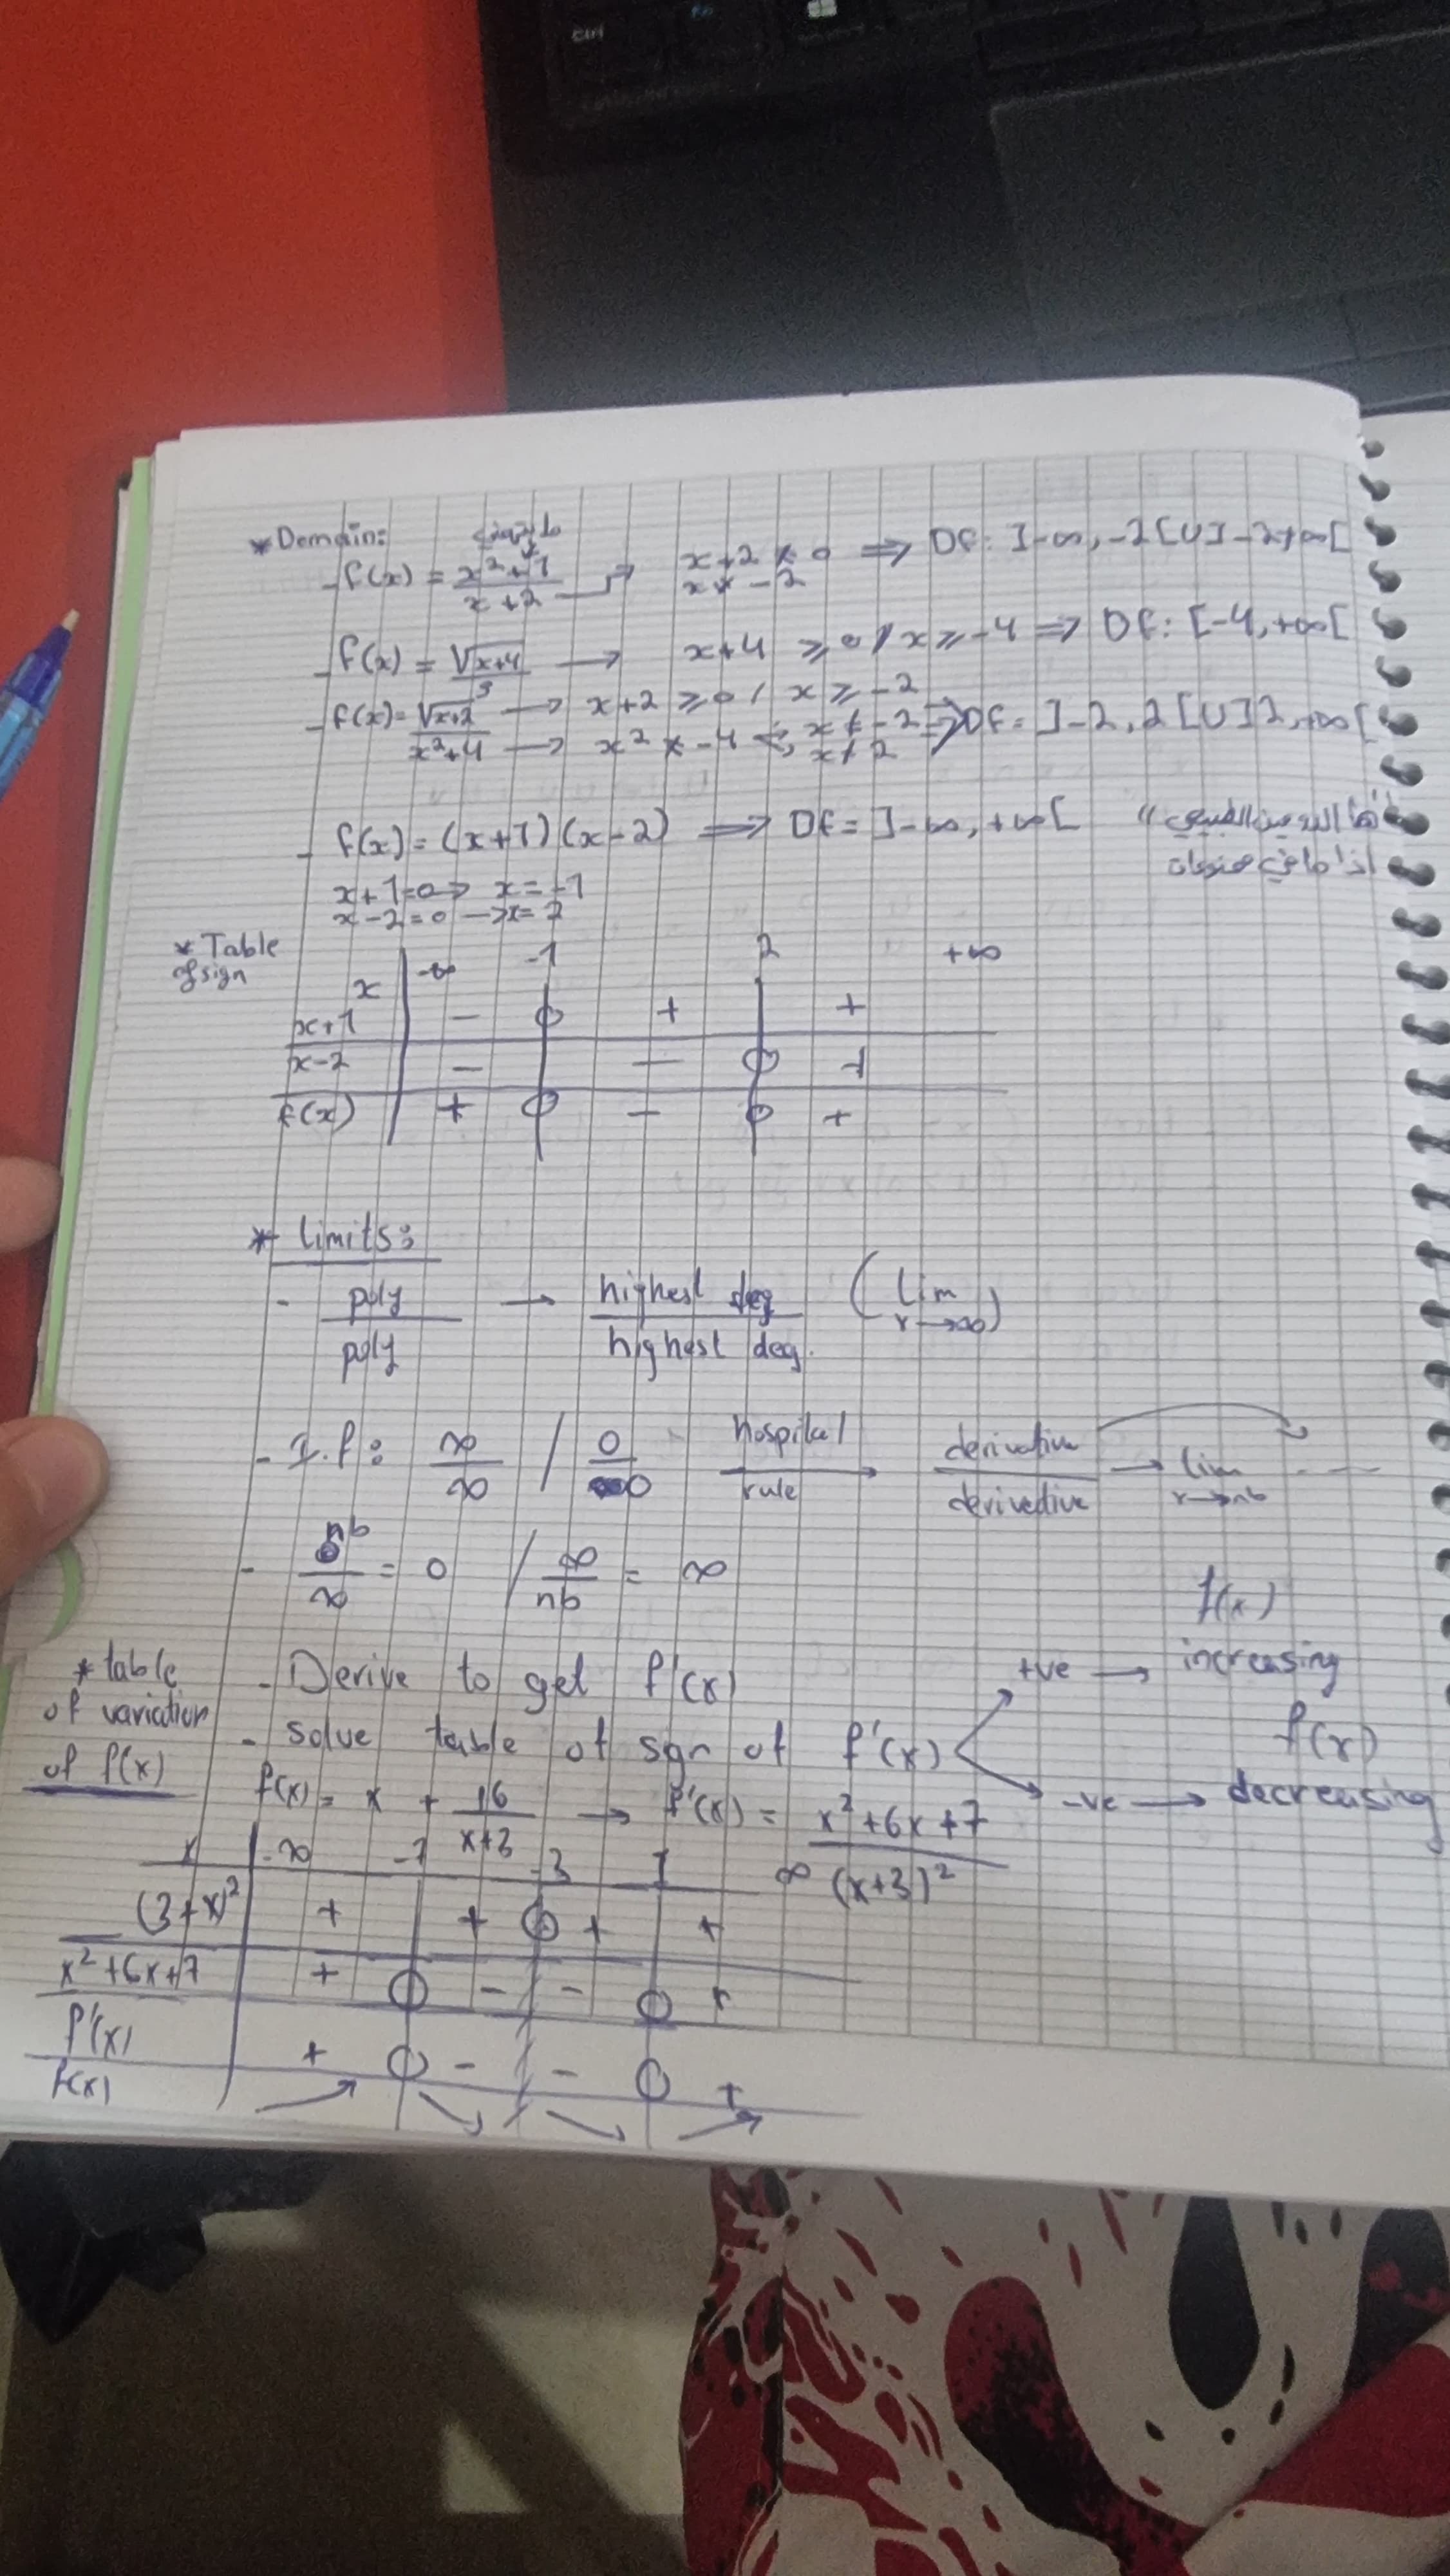 Ctrl
* Domain:
- f(x) = (x² + 1)/(x + 2) → x + 2 ≠ 0 ⇒ Df: ]-∞, -2[U]-2, +∞[
x ≠ -2
- f(x) = √(x+4) → x+4 ≥ 0 / x ≥ -4 ⇒ Df: [-4, +∞[
- f(x) = √(x+2)³/(x²+4) → x+2 ≥ 0 / x ≥ -2
→ x² ≠ -4 ; x ≠ -2 ⇒ Df = ]-2, 2[U]2, +∞[
x ≠ 2
- f(x) = (x+1)(x-2) ⇒ Df = ]-∞, +∞[
اذا ما في
x+1=0 → x = -1
x-2=0 → x = 2
* Table of sign
x | -∞ -1 2 +∞
x+1 | - 0 + +
x-2 | - - 0 +
f(x) | + 0 - 0 +
* limits:
- poly/poly → highest deg/highest deg. (lim x→∞)
- I.f: ∞/∞ / 0/0 hospital rule → derivative/derivative → lim x→nb ---
- nb/∞ = 0 / ∞/nb = ∞
* table of variation of f(x)
- Derive to get f'(x)
- solve table of sign of f'(x)
+ve → f(x) increasing
-ve → f(x) decreasing
f(x) = x + 16/(x+3) → f'(x) = (x²+6x+7)/(x+3)²
x | -∞ -7 -3 1 ∞
(3+x)² | + + 0 + +
x²+6x+7 | + 0 - - 0 +
f'(x) | + 0 - - 0 +
f(x) | ↗ ↘ ↘ ↗